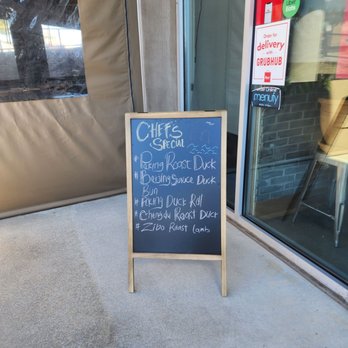 CHEFS
SPECIAL
# Peking Roast Duck
# Beijing Sauce Duck
Bun
# Peking Duck Roll
# Chengdu Roast Duck
# Zibo Roast Lamb
Order for
delivery
with
GRUBHUB
menufy